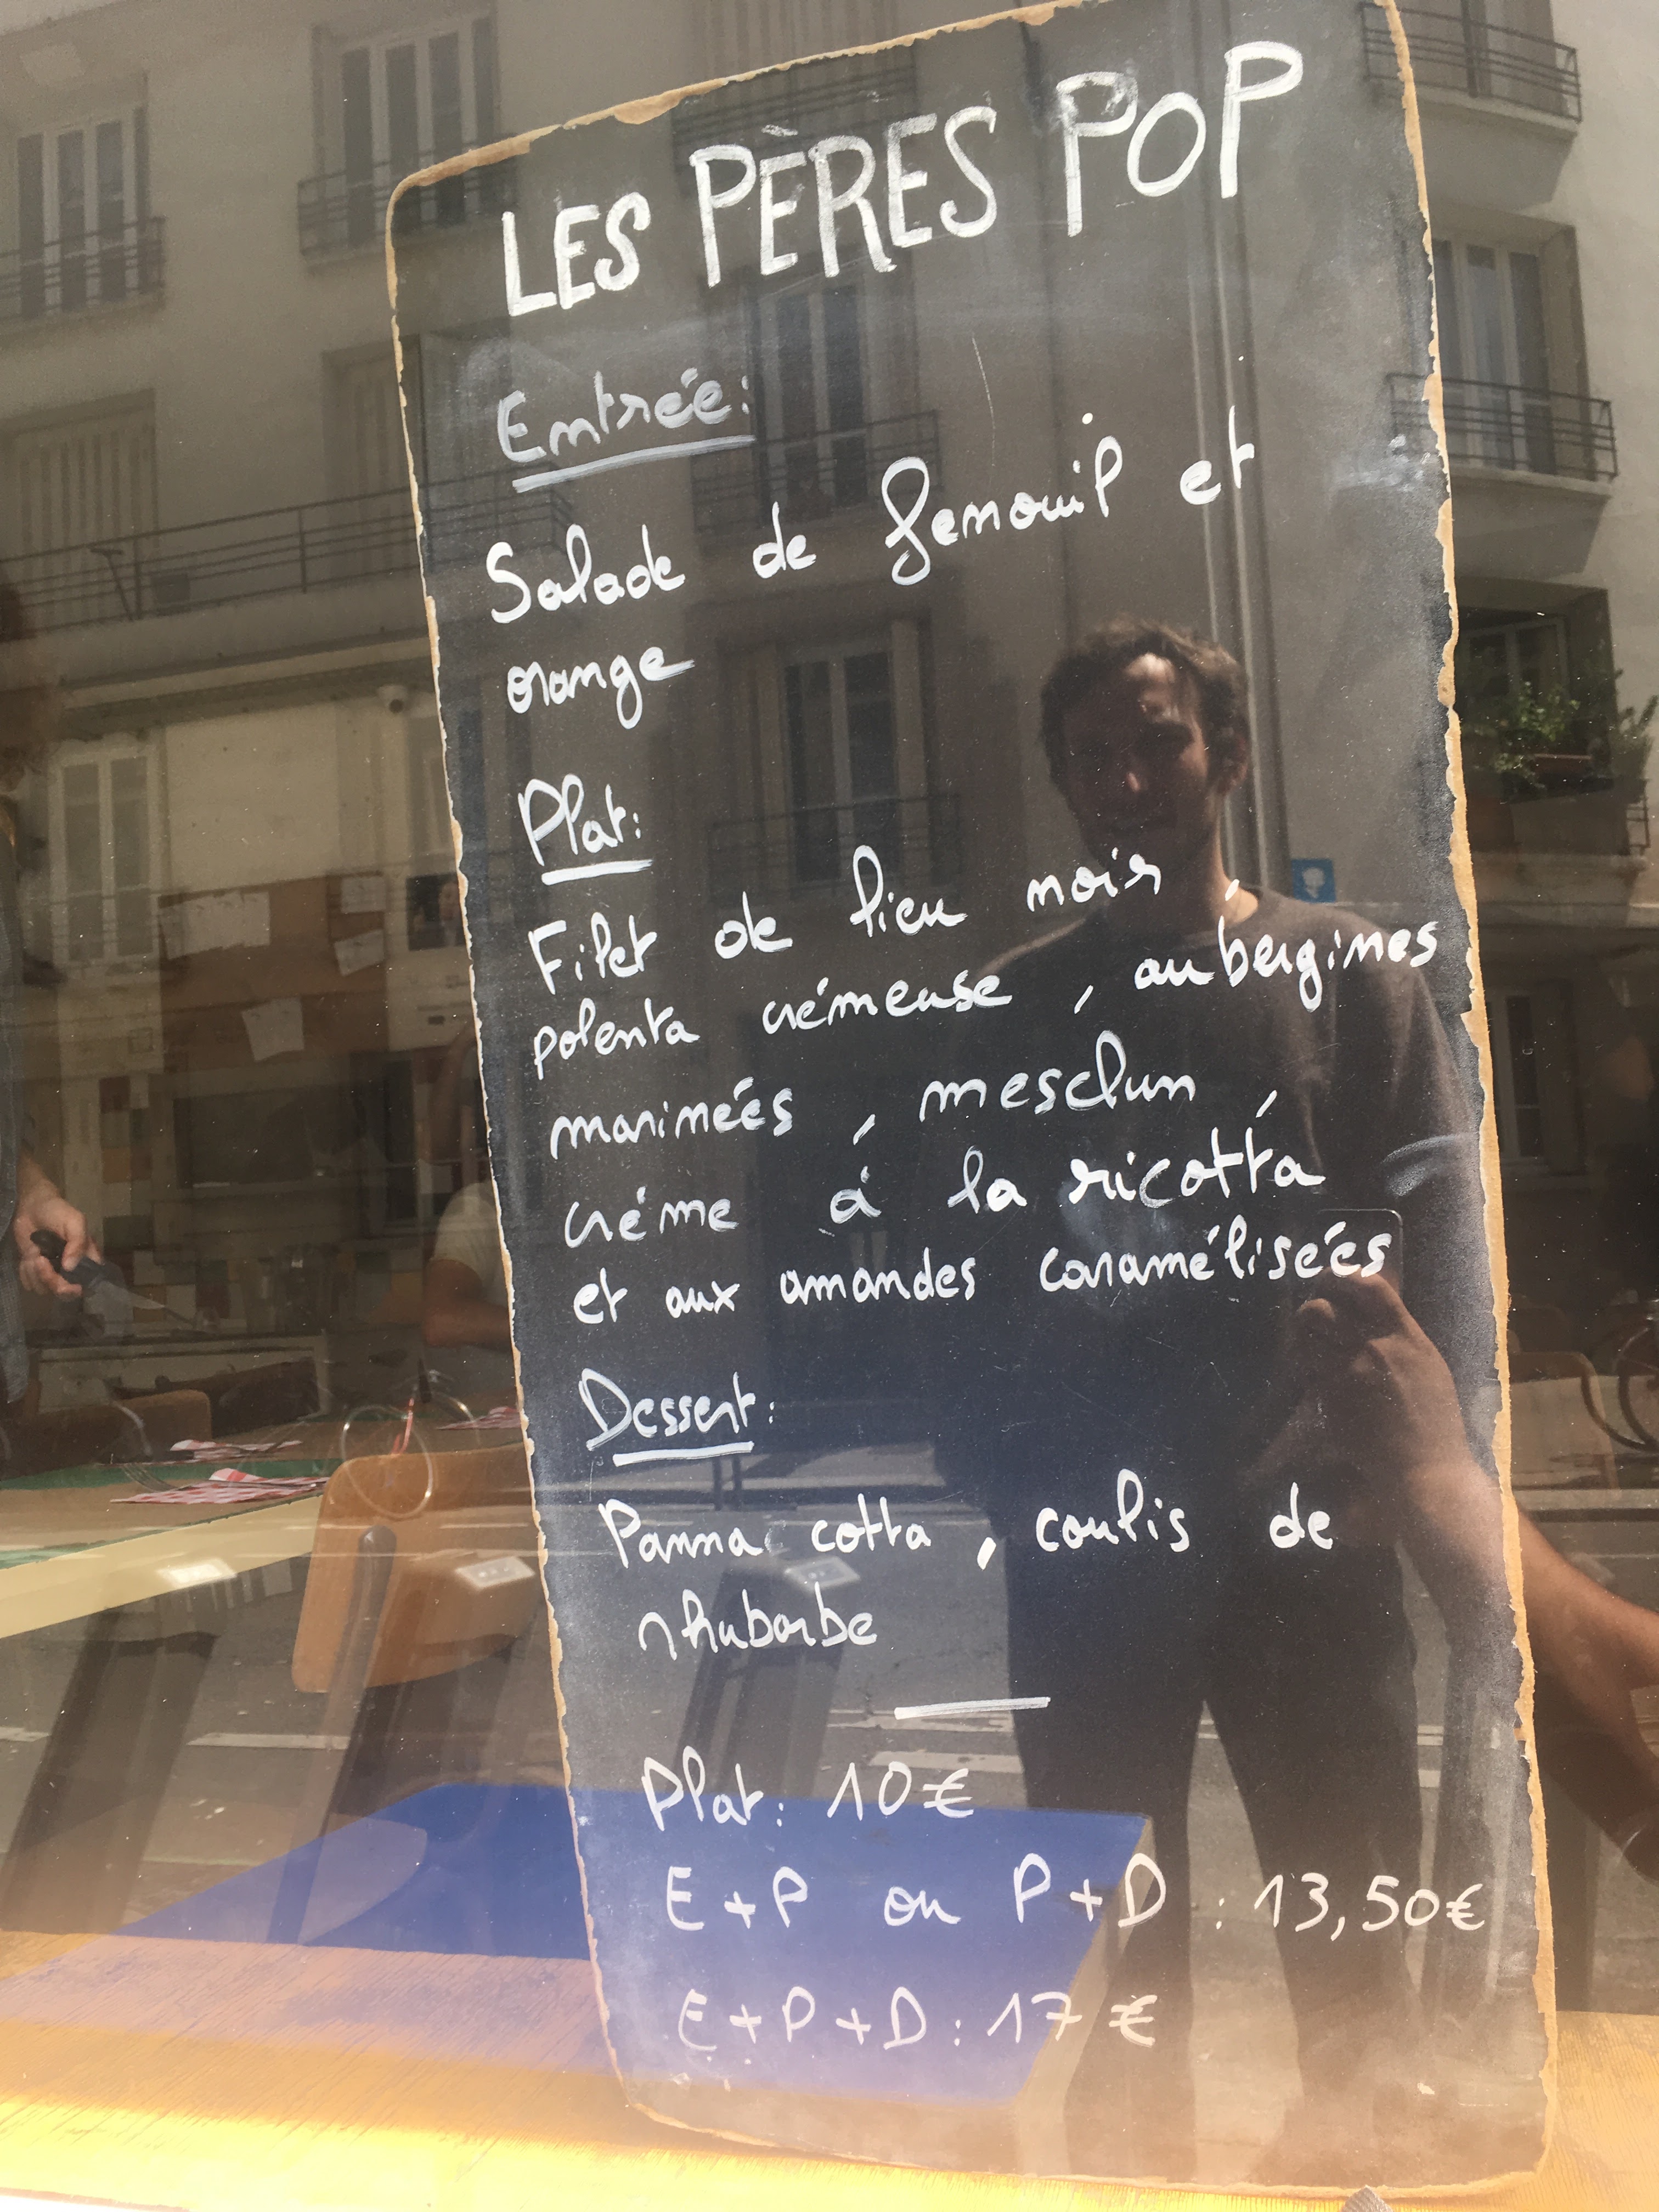 LES PÈRES POP
Entrée:
Salade de fenouil et
orange
Plat:
Filet de lieu noir,
polenta crémeuse, aubergines
marinées, mesclun,
créme á la ricotta
et aux amandes caramélisées
Dessert:
Panna cotta, coulis de
rhubarbe
Plat: 10€
E+P ou P+D: 13,50€
E+P+D: 17€